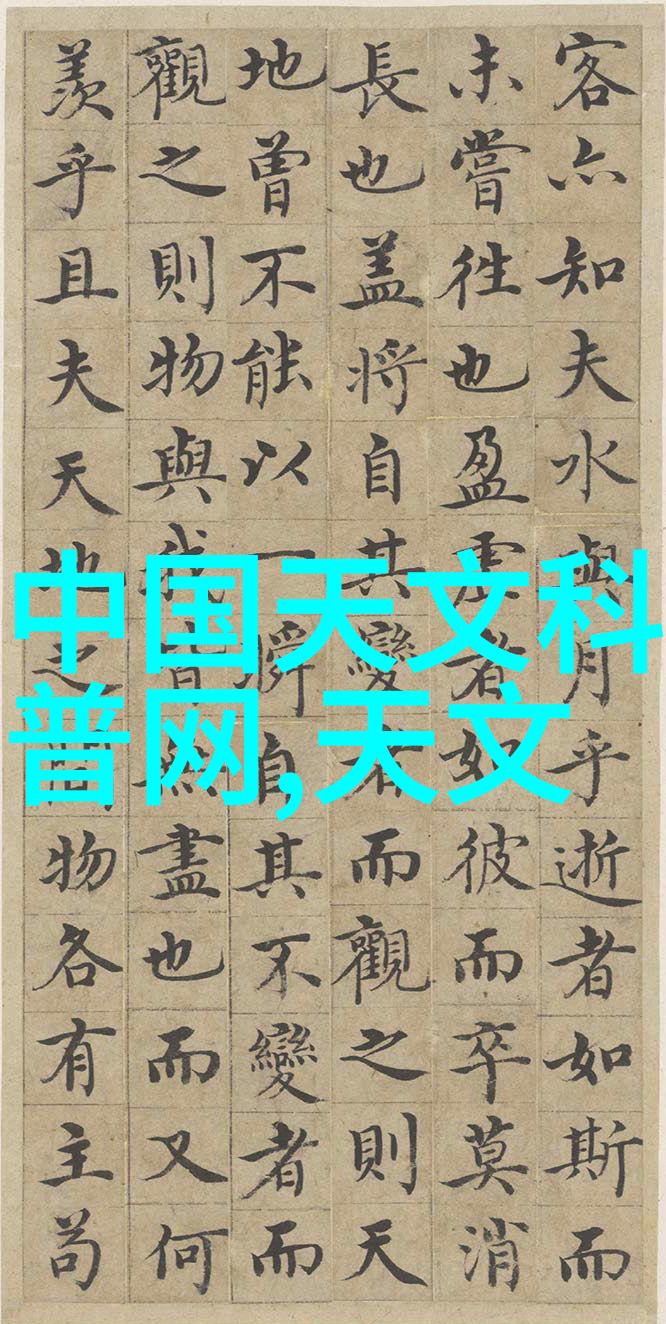 客亦知夫水與月乎逝者如斯而
未嘗往也盈虛者如彼而卒莫消
長也盖將自其變者而觀之則天
地曾不能以一瞬自其不變者而
觀之則物與我皆無盡也而又何
羨乎且夫天地之間物各有主苟
中国天文科
普网,天文